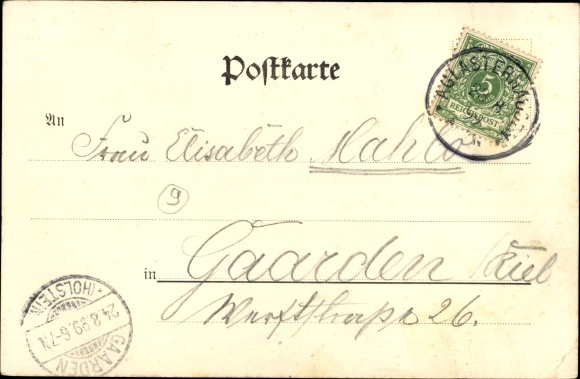 Postkarte
5
REICHSPOST
An
Frau Elisabeth Mahlo
9
in Gaarden Kiel
Werftstraße 26.
GAARDEN
24.8.99.6-7N
*(HOLSTEIN)